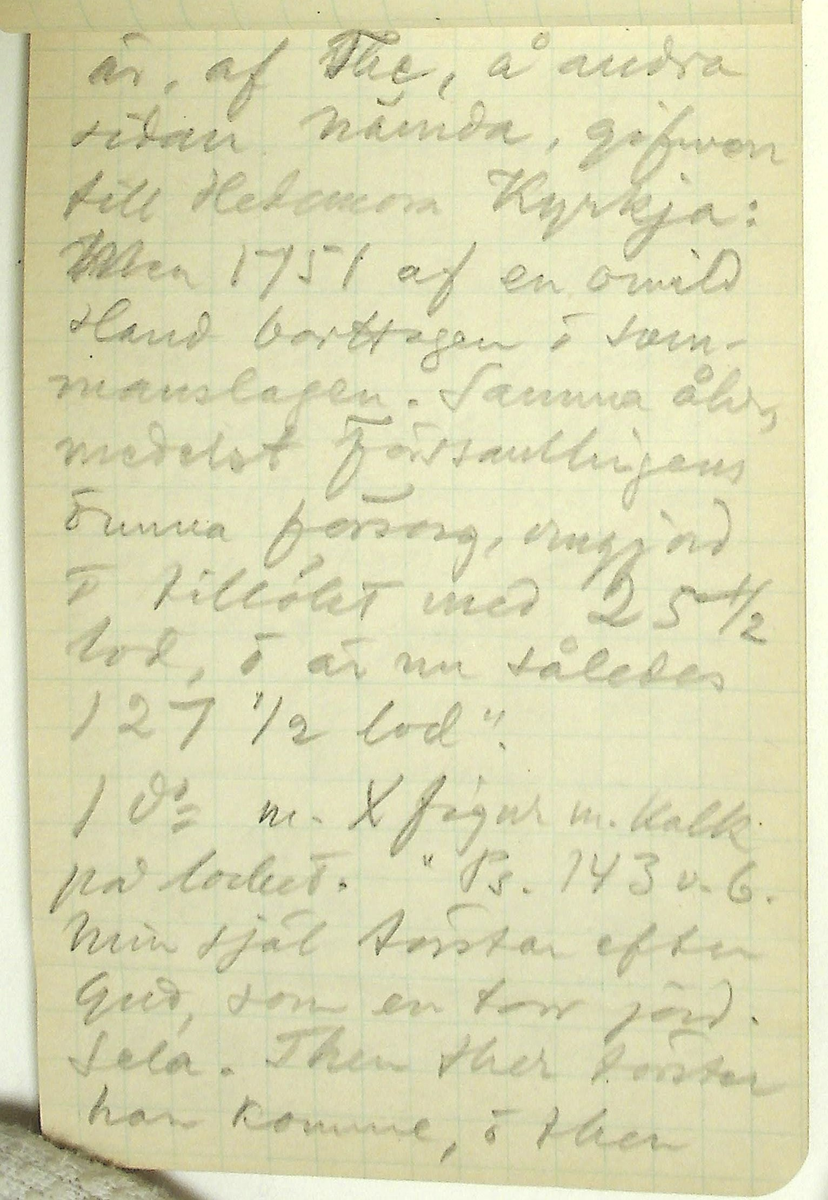 är, af The, å andra
sidan nämda, gifwen
till Hedemora Kyrkja:
Men 1751 af en omild
Hand borttagen i som-
marslagen. Samma åhr,
medelst Församlingens
ömma försorg, omgjord
o tillökt med 25 1/2
lod, o är nu således
127 1/2 lod".
1 do m. X figur m. Kalk
på locket. " Ps. 143 v. 6.
Min själ törstar efter
Gud, som en torr jord.
Sela. Then ther törster
han komme, o then